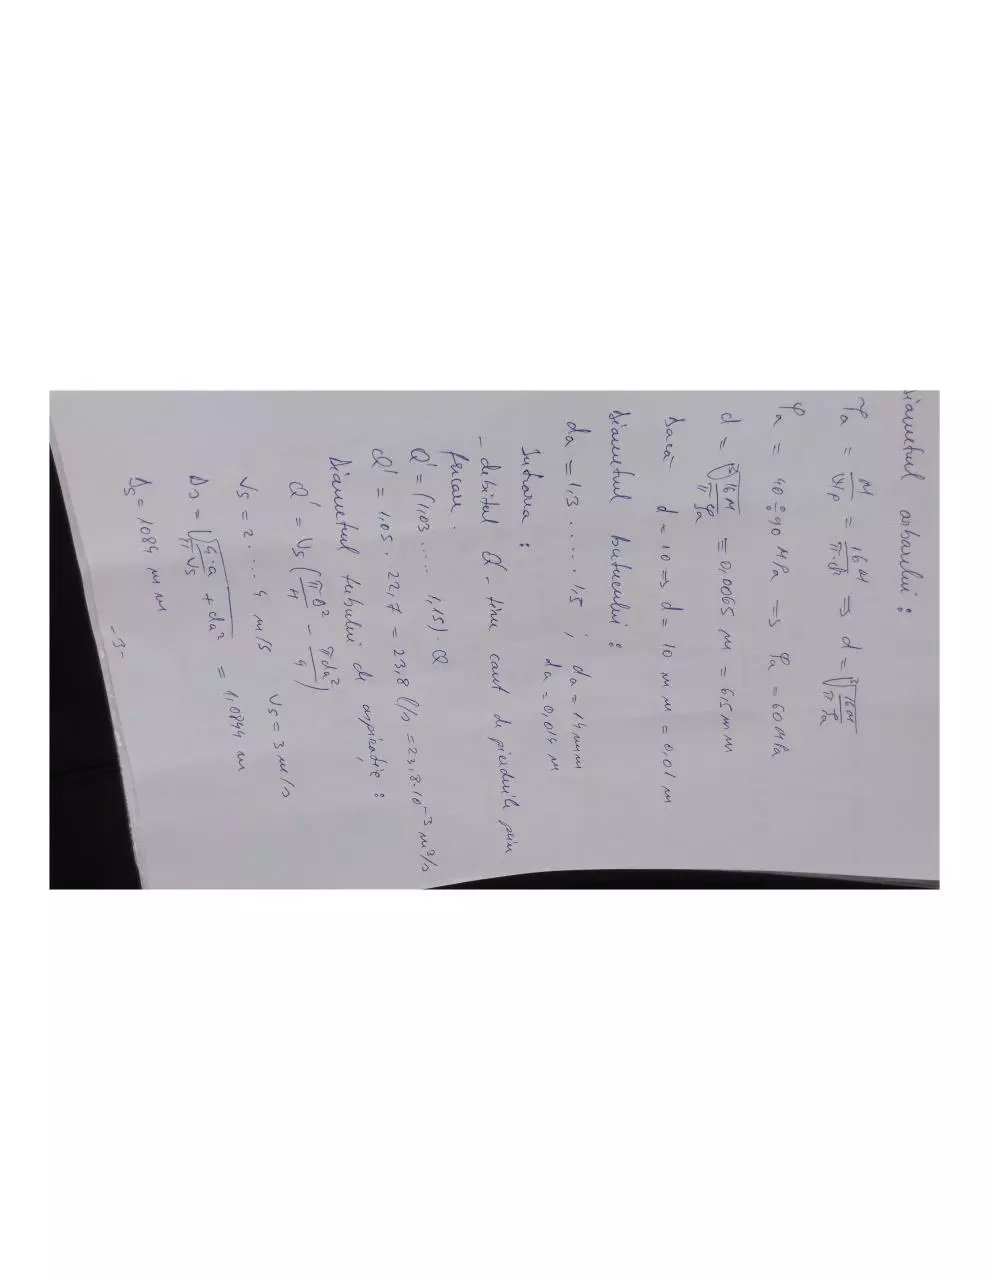 Diametrul arborelui :
τa = M/Wp = 16M/π·d³ => d = ∛(16M/π·τa)
τa = 40÷90 MPa => τa = 60 MPa
d = ∛(16M/π·τa) = 0,0065 m = 6,5 mm
Dacă d = 10 => d = 10 mm = 0,01 m
Diametrul butucului :
da = 1,3 .... 1,5 ; da = 14 mm
da = 0,014 m
Intrarea :
- debitul Q' - tine cont de pierderile prin
frecare.
Q' = (1,03 .... 1,15) · Q
Q' = 1,05 · 22,7 = 23,8 l/s = 23,8·10⁻³ m³/s
Diametrul tubului de aspirație :
Q' = Vs (πD²/4 - πda²/4)
Vs = 2 ... 4 m/s Vs = 3 m/s
Ds = √(4·Q/π·Vs + da²) = 1,0844 m
Ds = 1084 mm
-3-